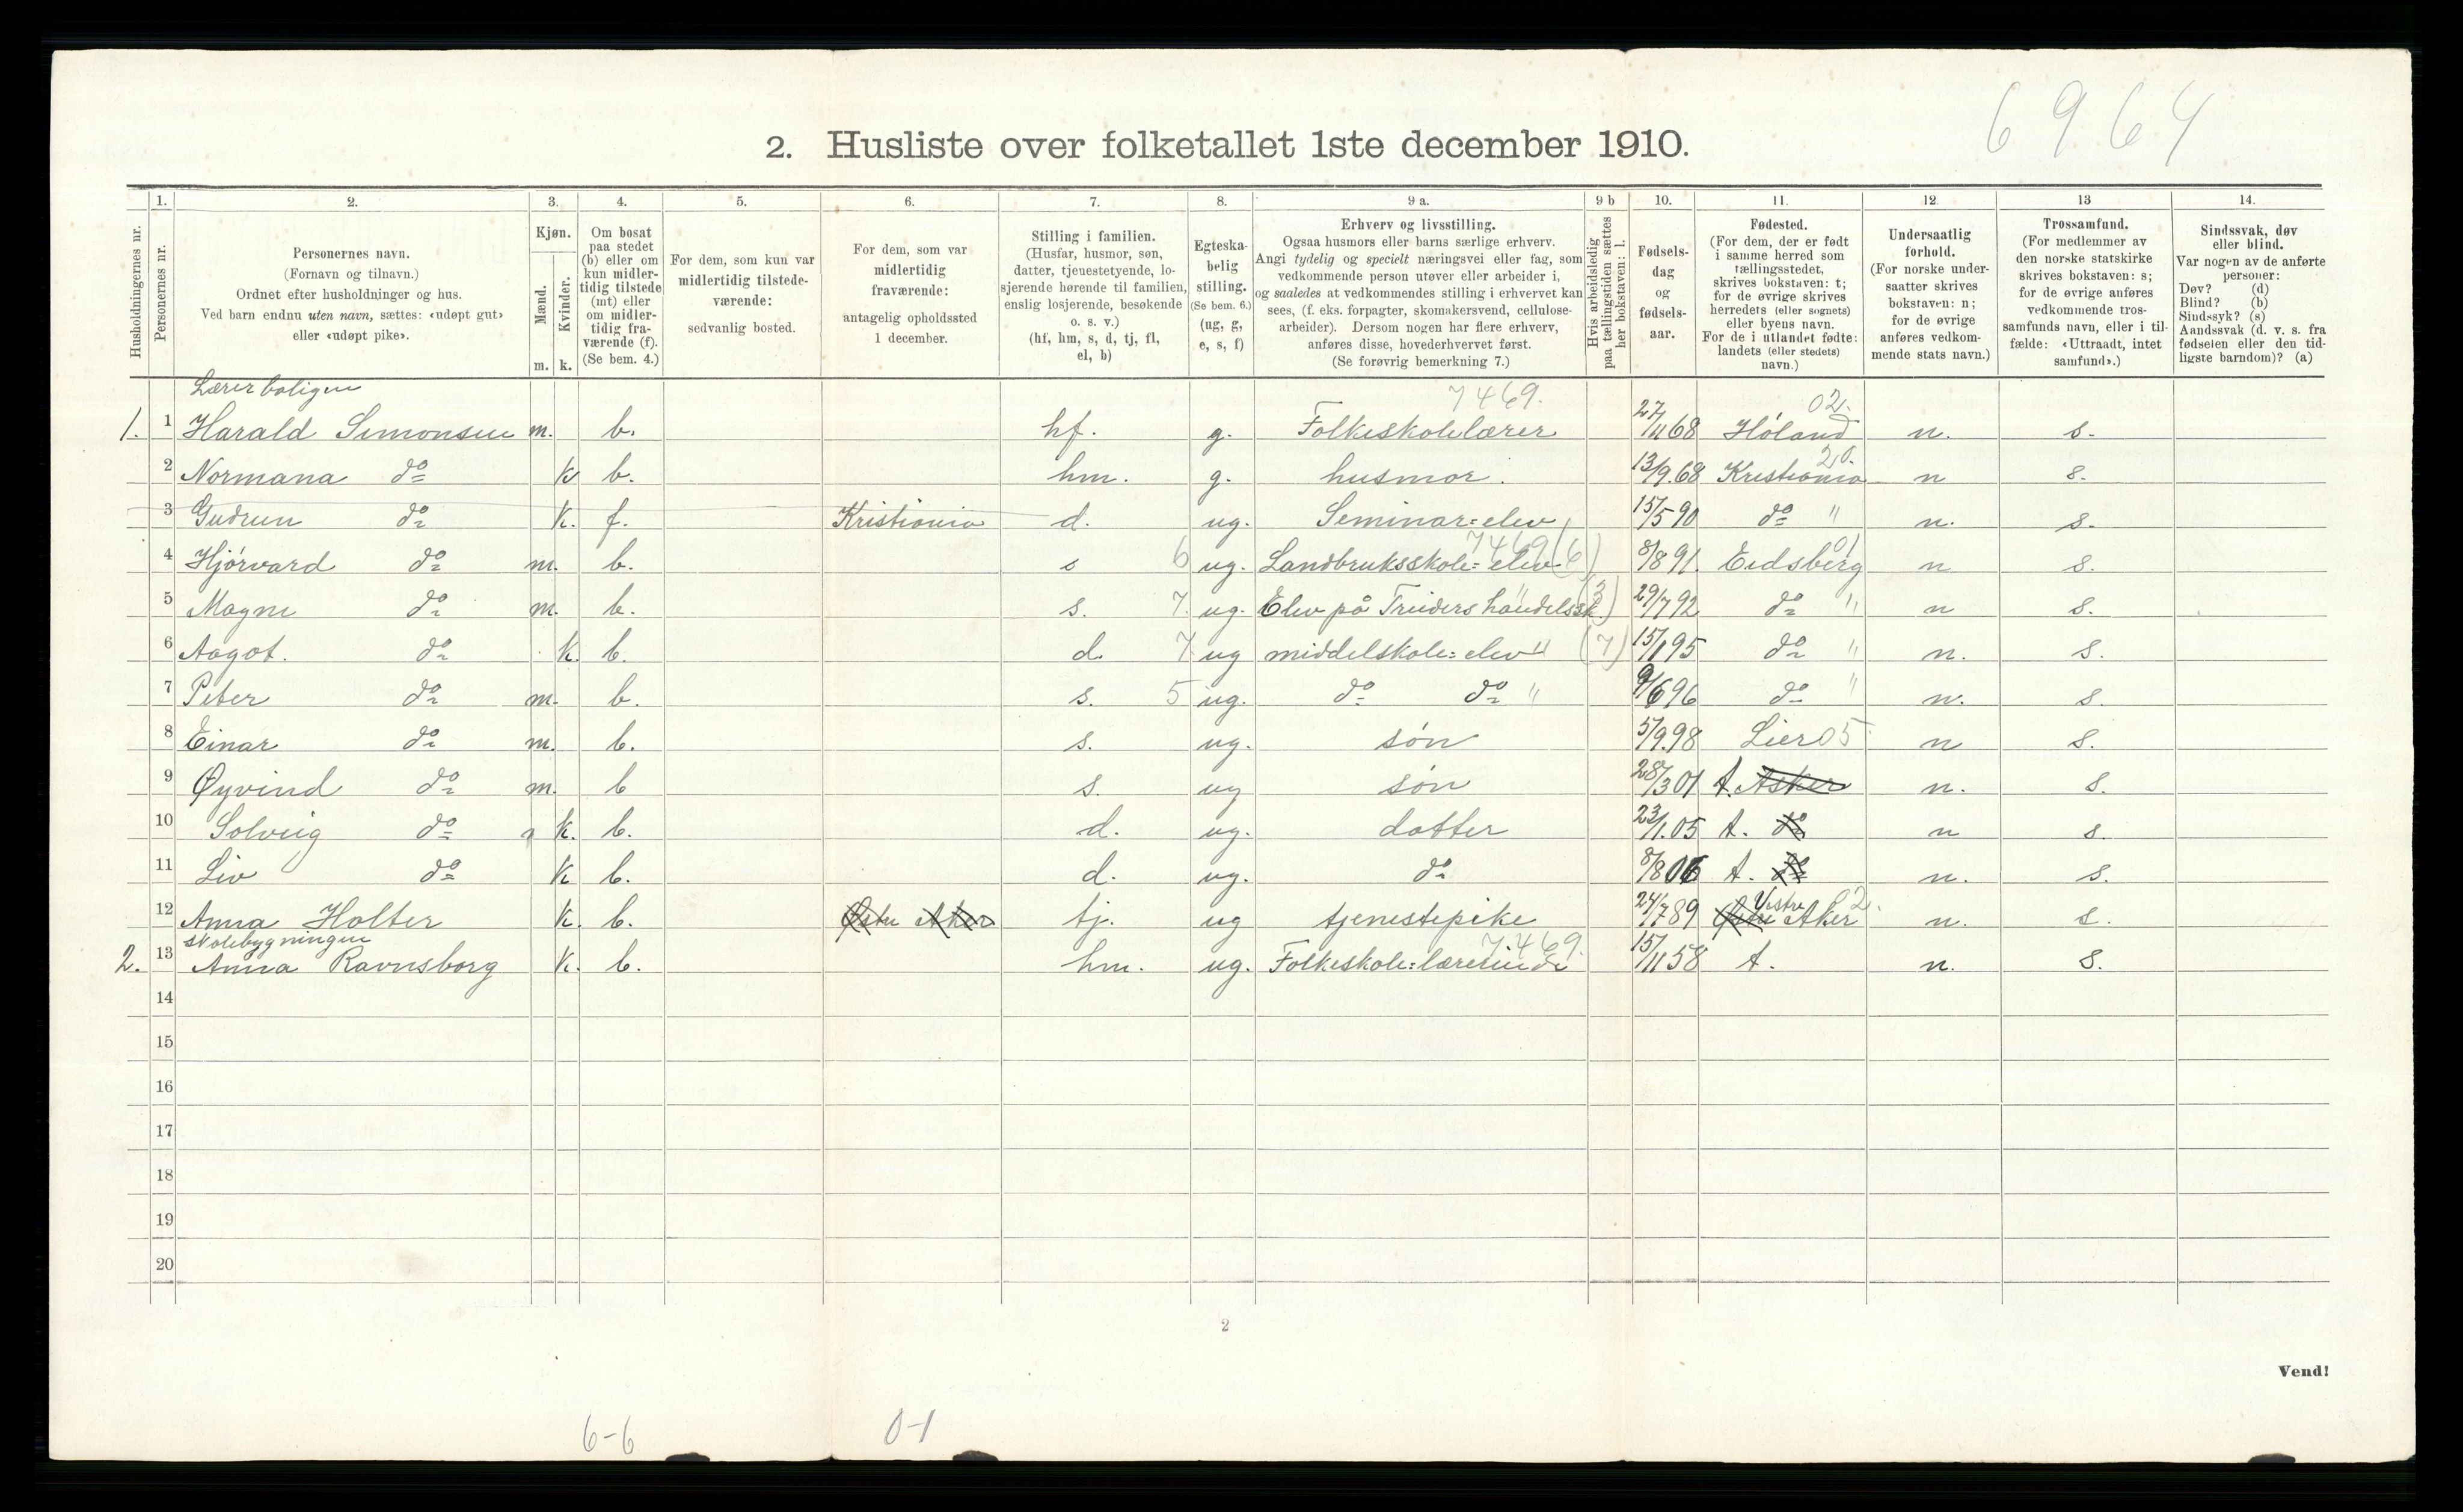 6964
2. Husliste over folketallet 1ste december 1910.
Husholdningernes nr.
1. Personernes nr.
2. Personernes navn. (Fornavn og tilnavn.) Ordnet efter husholdninger og hus. Ved barn endnu uten navn, sættes: «udøpt gut» eller «udøpt pike».
3. Kjøn. Mænd. m. Kvinder. k.
4. Om bosat paa stedet (b) eller om kun midlertidig tilstede (mt) eller om midlertidig fraværende (f). (Se bem. 4.)
5. For dem, som kun var midlertidig tilstedeværende: sedvanlig bosted.
6. For dem, som var midlertidig fraværende: antagelig opholdssted 1 december.
7. Stilling i familien. (Husfar, husmor, søn, datter, tjenestetyende, losjerende hørende til familien, enslig losjerende, besøkende o. s. v.) (hf, hm, s, d, tj, fl, el, b)
8. Egteskabelig stilling. (Se bem. 6.) (ug, g, e, s, f)
9 a. Erhverv og livsstilling. Ogsaa husmors eller barns særlige erhverv. Angi tydelig og specielt næringsvei eller fag, som vedkommende person utøver eller arbeider i, og saaledes at vedkommendes stilling i erhvervet kan sees, (f. eks. forpagter, skomakersvend, cellulosearbeider). Dersom nogen har flere erhverv, anføres disse, hovederhvervet først. (Se forøvrig bemerkning 7.)
9 b Hvis arbeidsledig paa tællingstiden sættes her bokstaven: l.
10. Fødselsdag og fødselsaar.
11. Fødested. (For dem, der er født i samme herred som tællingsstedet, skrives bokstaven: t; for de øvrige skrives herredets (eller sognets) eller byens navn. For de i utlandet fødte: landets (eller stedets) navn.)
12. Undersaatlig forhold. (For norske undersaatter skrives bokstaven: n; for de øvrige anføres vedkommende stats navn.)
13 Trossamfund. (For medlemmer av den norske statskirke skrives bokstaven: s; for de øvrige anføres vedkommende trossamfunds navn, eller i tilfælde: «Uttraadt, intet samfund».)
14. Sindssvak, døv eller blind. Var nogen av de anførte personer: Døv? (d) Blind? (b) Sindssyk? (s) Aandssvak (d. v. s. fra fødselen eller den tidligste barndom)? (a)
Lærerboligen 7469. 02.
1. 1 Harald Simonsen m. b. hf. g. Folkeskolelærer 27/11 68 Høland n. s.
2 Normana do k b. hm. g. husmor. 13/9.68 Kristiania 20. n s.
3 Gudrun do k. f. Kristiania d. ug. Seminar=elev 15/5 90 do " n. s.
4 Hjørvard do m. b. s 6 ug. Landbruksskole=elev 7469 (6) 8/8 91. Eidsberg 01 n s.
5 Magne do m. b. s. 7. ug. Elev på Treiders handelssk " (3) 29/7 92 do " n s.
6 Aagot. do k. b. d. 7 ug middelskole=elev " (7) 15/1 95 do " n. s.
7 Peter do m. b. s. 5 ug. do do " 9/6 96 do " n. s.
8 Einar do m. b. s. ug. søn 5/9.98 Lier 05 n s.
9 Øyvind do m. b s. ug søn 28/3 01 t. Asker n. s.
10 Solveig do k. b. d. ug. datter 23/1.05 t. do n s.
11 Liv do k b. d. ug. do 8/8 06 t. do n. s.
12 Anna Holter k. b. Østre Aker tj. ug tjenestepike 24/7 89 Østre Vestre Aker 02. n. s.
skolebygningen 7469.
2. 13 Anna Ravnsborg k. b. hm. ug. Folkeskole=lærerinde 15/11 58 t. n. s.
14
15
16
17
18
19
20
2
Vend!
6-6 0-1